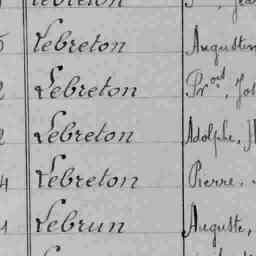 Lebreton
5 Lebreton Augustin
2 Lebreton Pr
2 Lebreton Adolphe, H
4 Lebreton Pierre,
1 Lebrun Auguste,